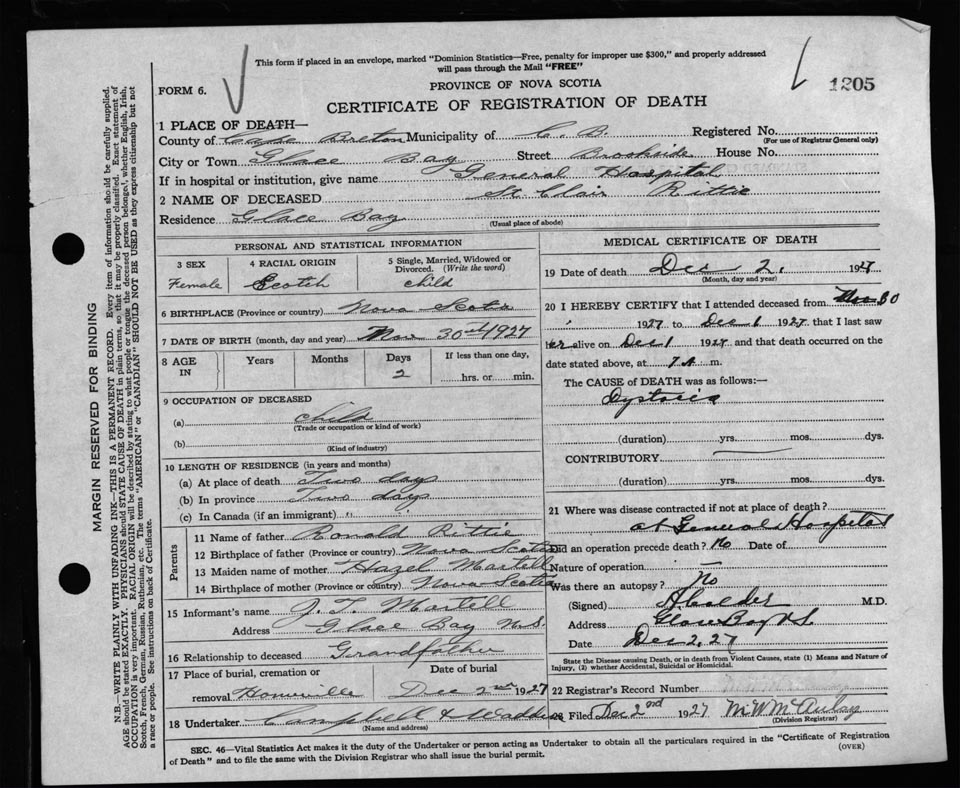 This form if placed in an envelope, marked "Dominion Statistics—Free, penalty for improper use $300," and properly addressed
will pass through the Mail "FREE"
1205
FORM 6.
PROVINCE OF NOVA SCOTIA
CERTIFICATE OF REGISTRATION OF DEATH
1 PLACE OF DEATH—
County of Cape Breton Municipality of C. B. Registered No.
(For use of Registrar General only)
City or Town Glace Bay Street Brookside House No.
If in hospital or institution, give name General Hospital
2 NAME OF DECEASED St Clair Rittie
Residence Glace Bay
(Usual place of abode)
PERSONAL AND STATISTICAL INFORMATION
3 SEX
Female
4 RACIAL ORIGIN
Scotch
5 Single, Married, Widowed or
Divorced. (Write the word)
child
6 BIRTHPLACE (Province or country) Nova Scotia
7 DATE OF BIRTH (month, day and year) Nov 30th 1927
8 AGE
IN
Years
Months
Days
2
If less than one day,
hrs. or min.
9 OCCUPATION OF DECEASED
(a) child
(Trade or occupation or kind of work)
(b)
(Kind of industry)
10 LENGTH OF RESIDENCE (in years and months)
(a) At place of death Two days
(b) In province Two days
(c) In Canada (if an immigrant) "
Parents
11 Name of father Ronald Rittie
12 Birthplace of father (Province or country) Nova Scotia
13 Maiden name of mother Hazel Martell
14 Birthplace of mother (Province or country) Nova Scotia
15 Informant's name J. T. Martell
Address Glace Bay N.S.
16 Relationship to deceased Grandfather
17 Place of burial, cremation or
removal Homeville
Date of burial
Dec 2nd 1927
18 Undertaker Campbell &
(Name and address)
MEDICAL CERTIFICATE OF DEATH
19 Date of death Dec 2, 1927
(Month, day and year)
20 I HEREBY CERTIFY that I attended deceased from Nov 30
1927 to Dec 1 1927 that I last saw
her alive on Dec 1 1927 and that death occurred on the
date stated above, at 7 A. m.
The CAUSE of DEATH was as follows:—
Dystocia
(duration) yrs. mos. dys.
CONTRIBUTORY
(duration) yrs. mos. dys.
21 Where was disease contracted if not at place of death?
at General Hospital
Did an operation precede death? No Date of
Nature of operation —
Was there an autopsy? No
(Signed) M.D.
Address Glace Bay N.S.
Date Dec 2, 27
State the Disease causing Death, or in death from Violent Causes, state (1) Means and Nature of
Injury, (2) whether Accidental, Suicidal or Homicidal.
22 Registrar's Record Number
23 Filed Dec 2nd 1927 M W McAulay
(Division Registrar)
SEC. 46—Vital Statistics Act makes it the duty of the Undertaker or person acting as Undertaker to obtain all the particulars required in the "Certificate of Registration
of Death" and to file the same with the Division Registrar who shall issue the burial permit.
(OVER)
MARGIN RESERVED FOR BINDING
N.B.—WRITE PLAINLY WITH UNFADING INK—THIS IS A PERMANENT RECORD. Every item of information should be carefully supplied.
AGE should be stated EXACTLY. PHYSICIANS should STATE CAUSE OF DEATH in plain terms, so that it may be properly classified. Exact statement of
OCCUPATION is very important. RACIAL ORIGIN will be described by stating to what people or tongue the deceased person belonged, whether English, Irish,
Scotch, French, German, Russian, Ruthenian, etc. The terms "AMERICAN" or "CANADIAN" SHOULD NOT BE USED as they express citizenship but not
a race or people. See instructions on back of Certificate.